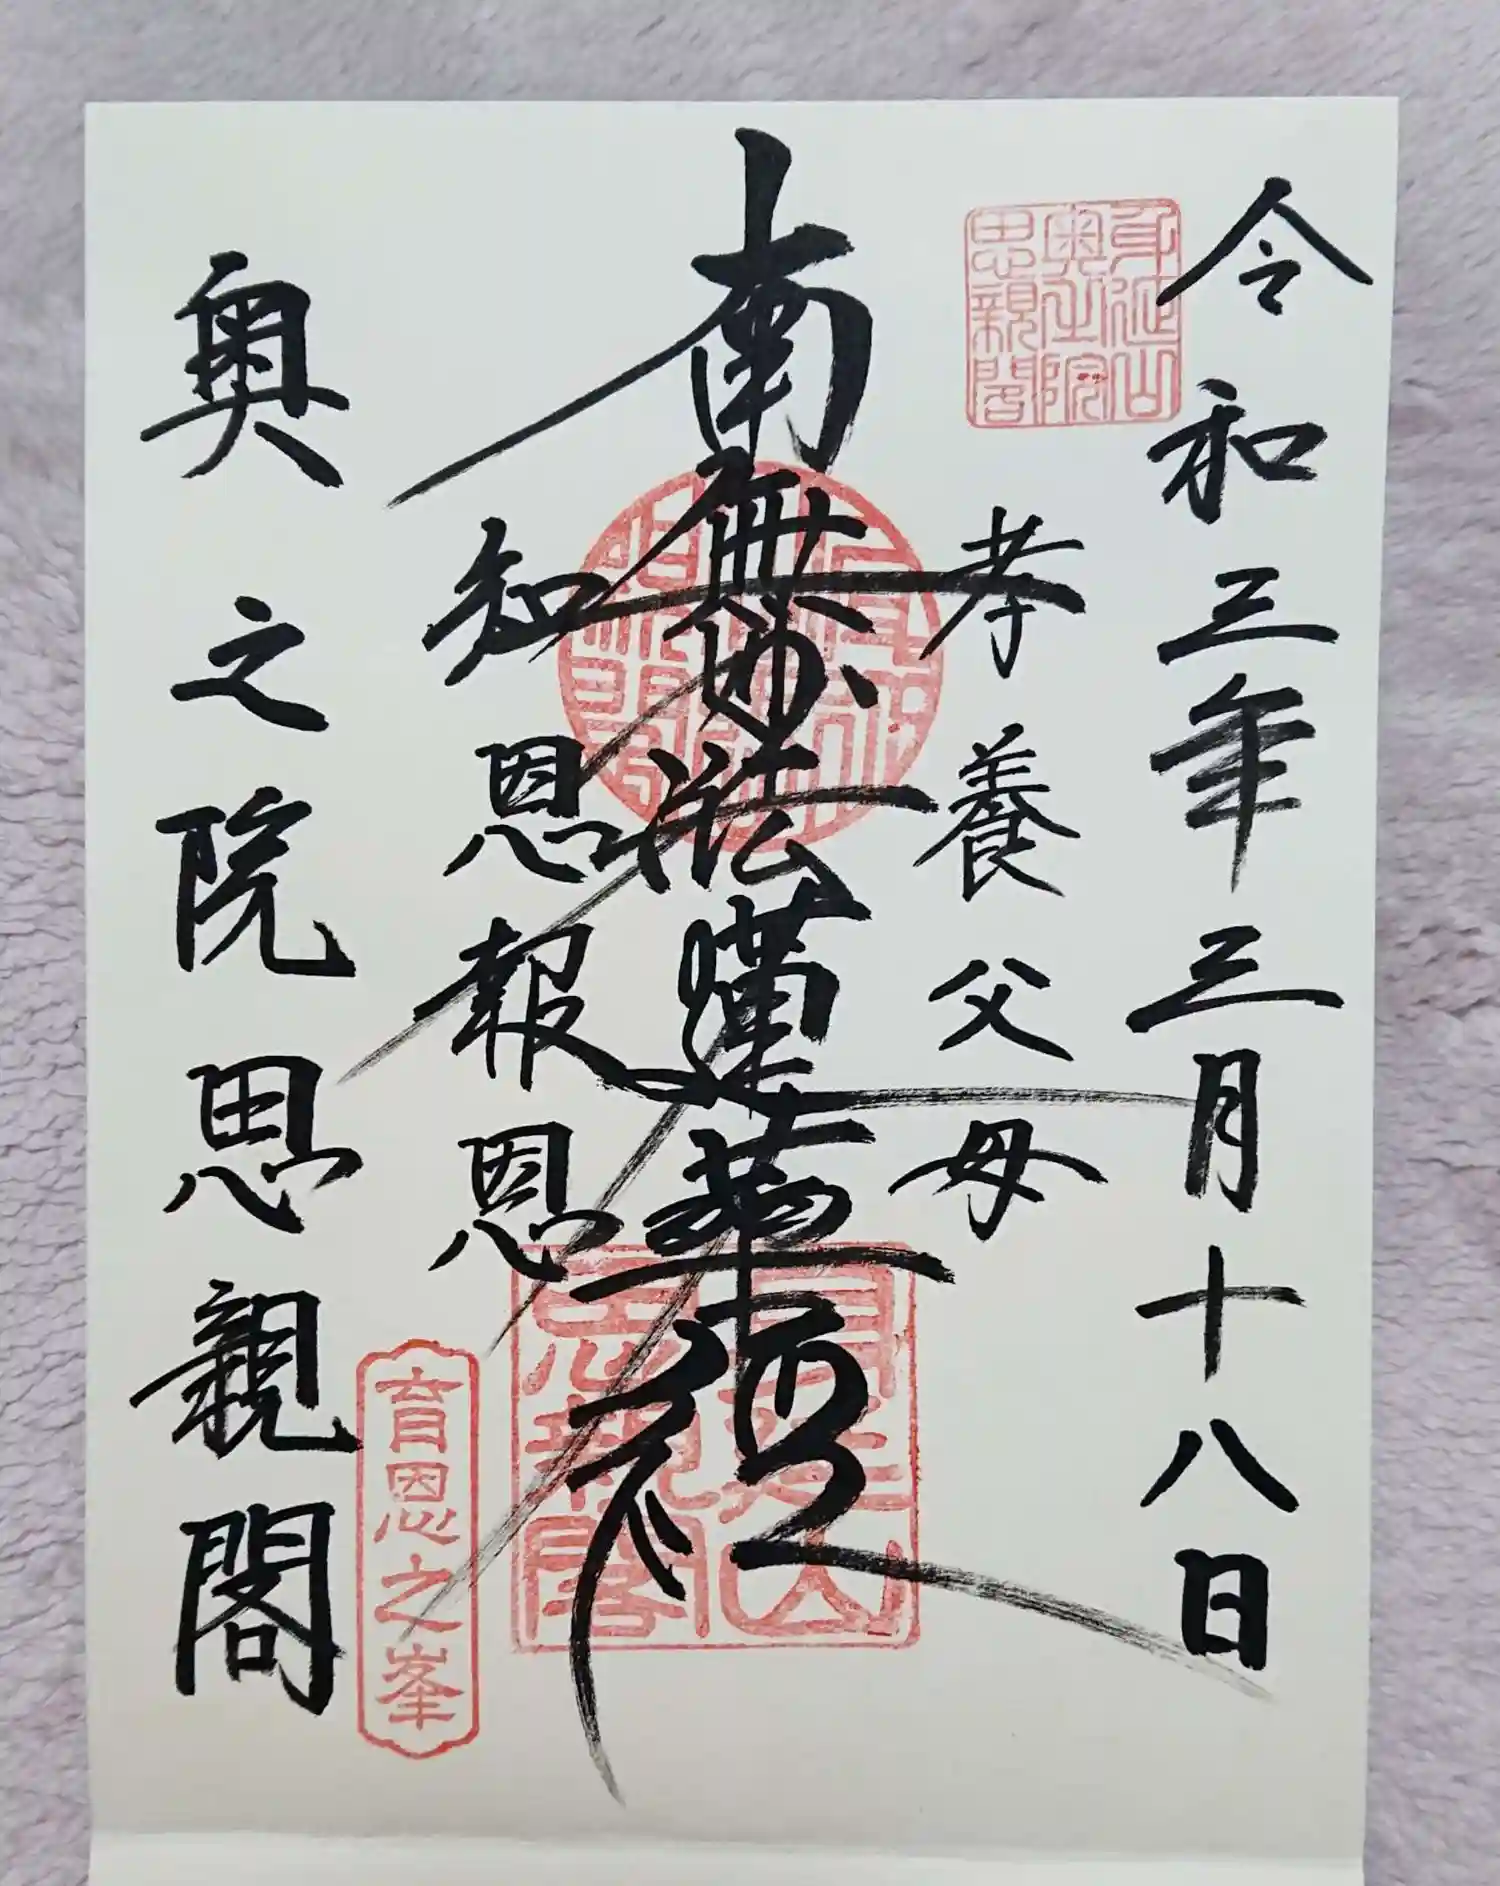 令和三年三月十八日
身延山
奥之院
思親閣
孝養父母
南無妙法蓮華経
知恩報恩
身延山
思親閣
育恩之峯
奥之院思親閣